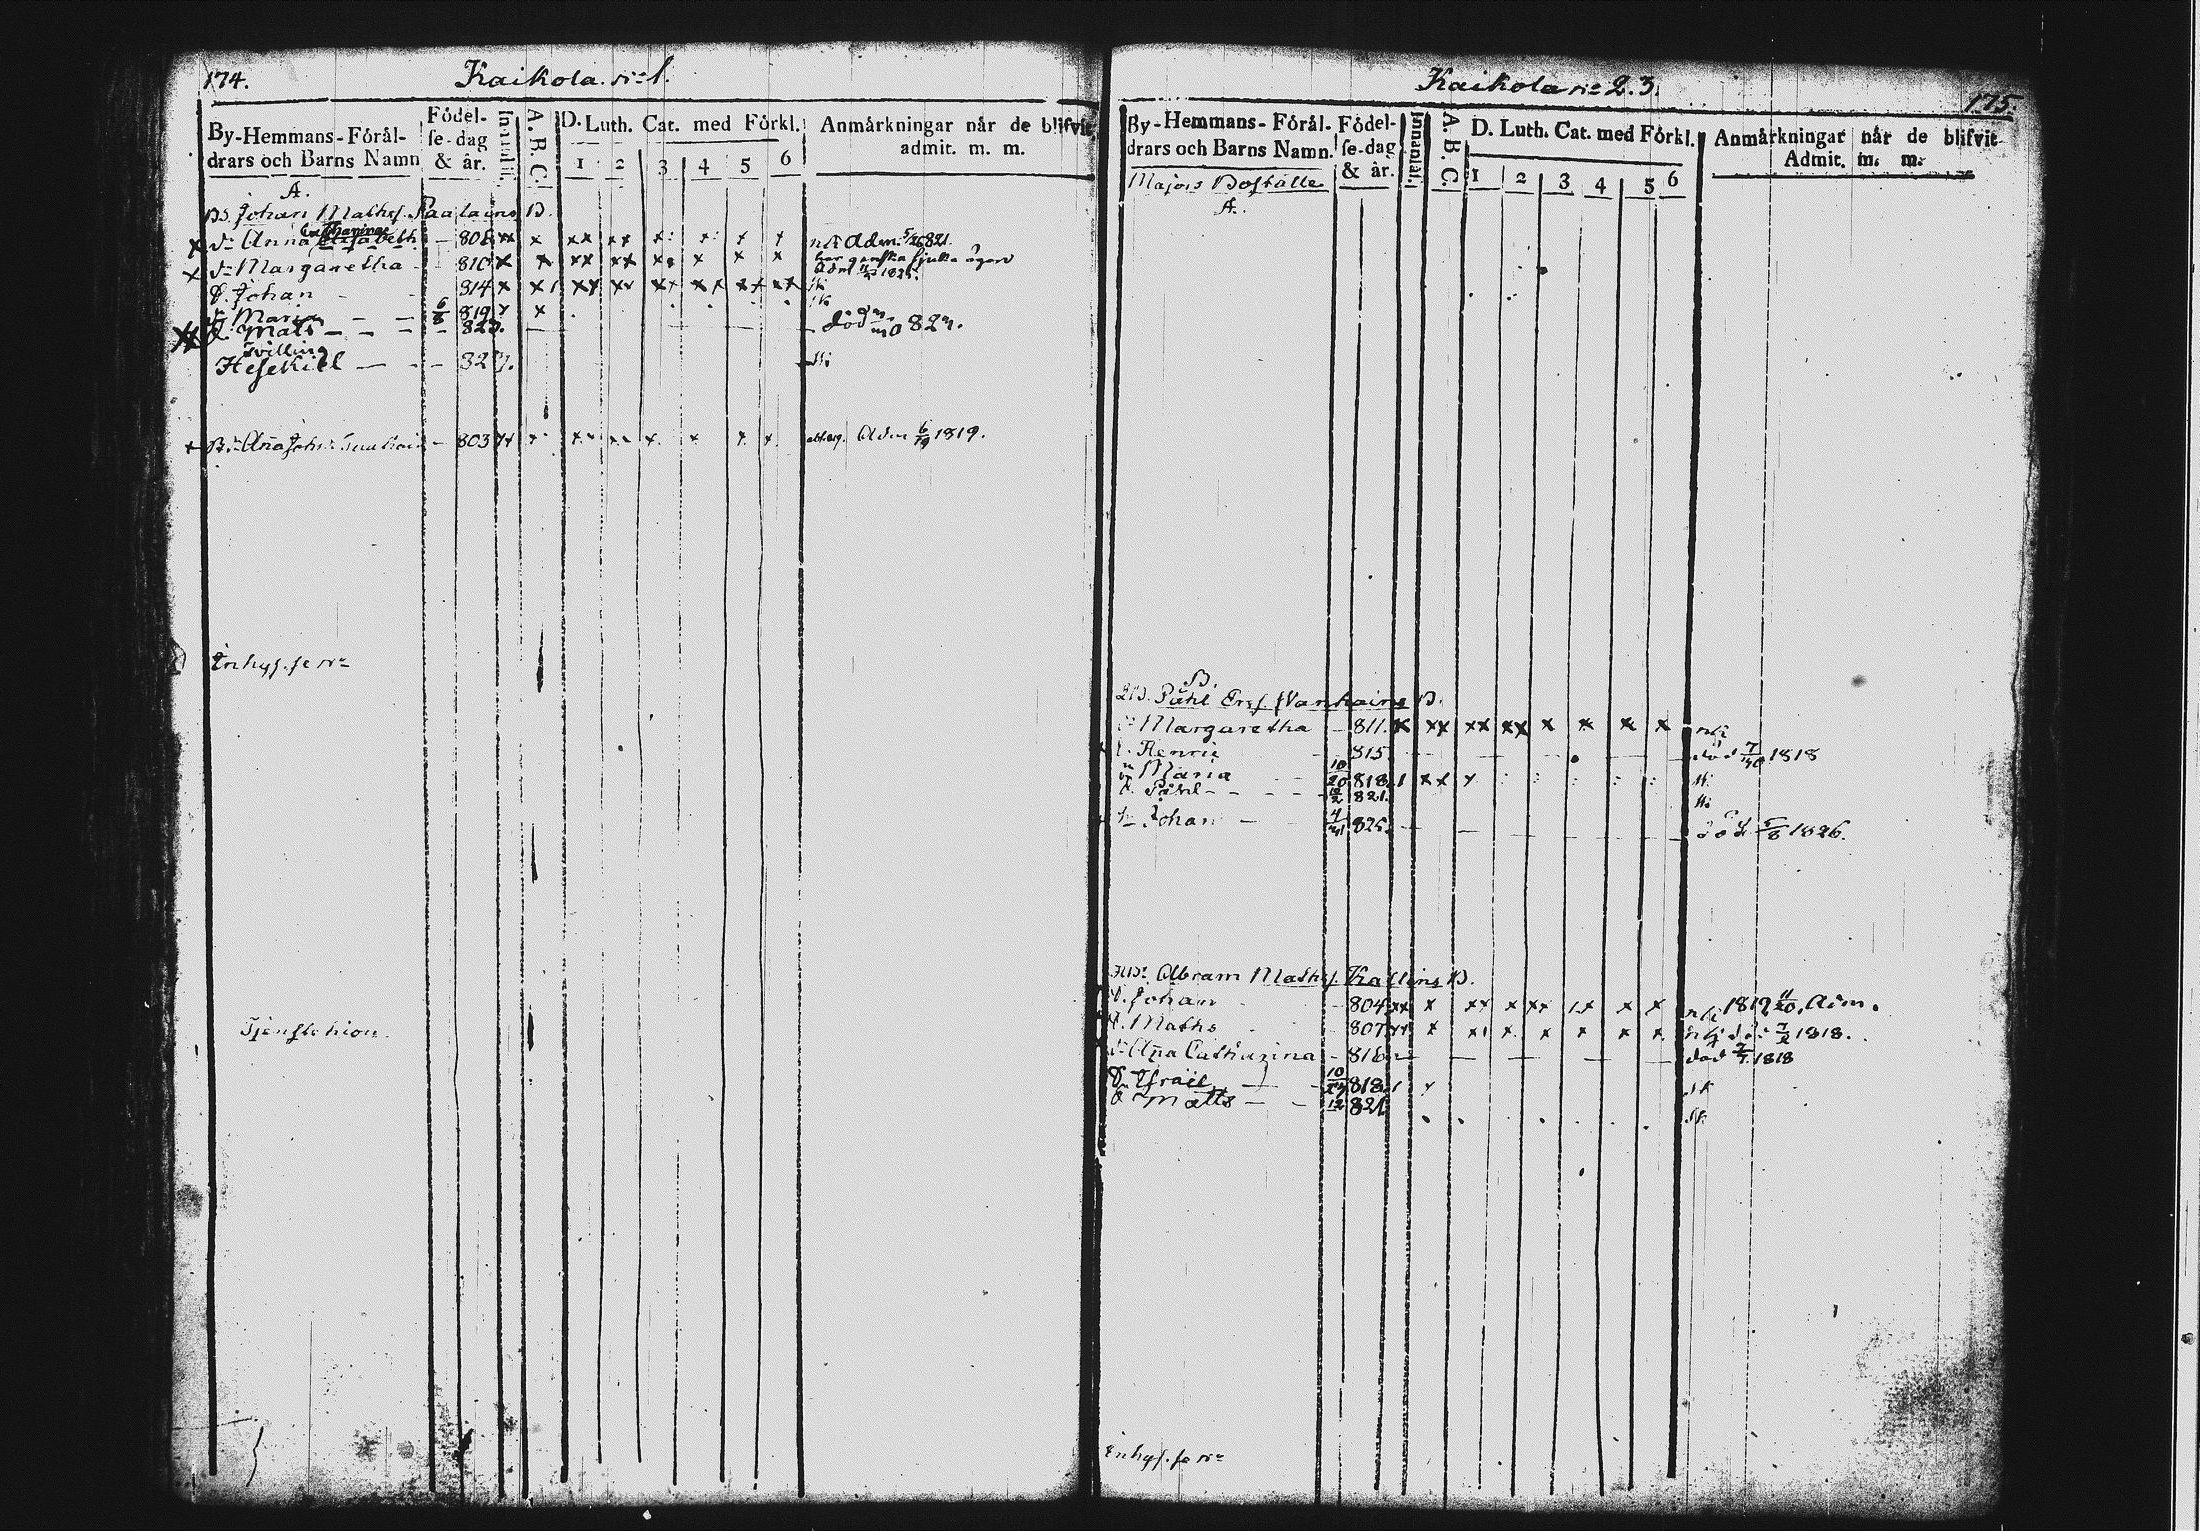 174.
Kaikola. No 1.
By-Hemmans-Förål-
drars och Barns Namn
Födel-
se-dag
& år.
Innanläs.
A. B. C.
D. Luth. Cat. med Förkl.
1 2 3 4 5 6
Anmårkningar når de blifvit
admit. m. m.
A.
Bd. Johan Mathsf. Paalains B.
Catharina
dr Anna Elisabeth — 808 xx x xx xx x: x: x x Adm. 821.
dr Margaretha 810 x x xx xx x x x x
Adm 1825.
S. Johan — 814 x x xx xx xx xx xx xx
dr Maria — — 6/8 819 x x
S. Mats — — — 823. död 823.
Tvilling
Hesekiel — — — 823.
Anna Johs — 803 xx x x x x x x x Adm 6/19 1819.
Enhys. se No
Tjenstehion
Kaikola No 2. 3.
175.
By-Hemmans-Förål-
drars och Barns Namn.
Födel-
se-dag
& år.
Innanläs.
A. B. C.
D. Luth. Cat. med Förkl.
1 2 3 4 5 6
Anmårkningar når de blifvit
Admit. m. m.
Majors Boställe
A.
B.
2 Bd. Påhl Ersf. Wanhains B.
dr Margaretha — 811. x xx xx xx x x x x
S. Henric 815 död 7/10 1818
dr Maria 10/20 818 1 xx x
S. Påhl — — — 12/2 821.
S. Johan — 825. — — död 5/8 1826.
Abram Mathsf. Kallins B.
S. Johan — 804 xx x xx x xx x x x 1819 11/20 Adm.
S. Maths 807 xx x x x x x x x 1818.
dr Anna Catharina — 816 — — — död 1818
S. Israel — 10/27 818 1 x
S. Matts — — 12 821
Enhys. se No